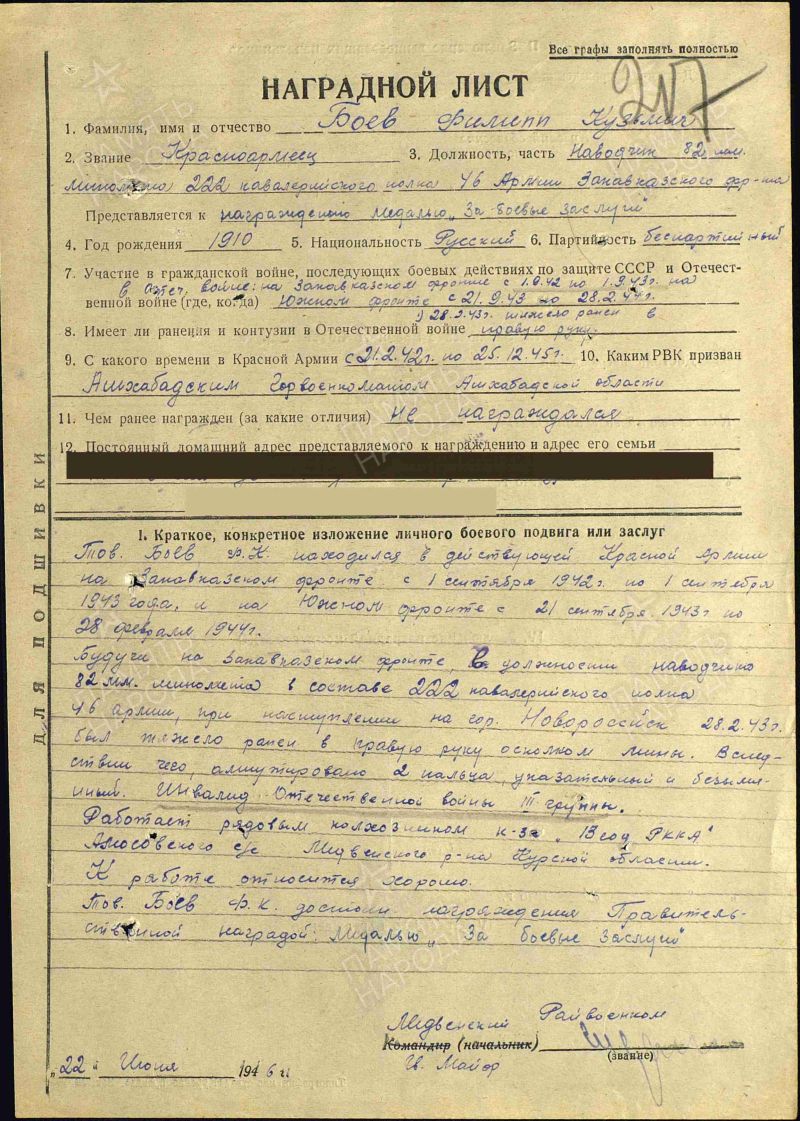 Все графы заполнять полностью
207
НАГРАДНОЙ ЛИСТ
1. Фамилия, имя и отчество Боев Филипп Кузьмич
2. Звание Красноармеец 3. Должность, часть Наводчик 82 мм.
миномета 222 кавалерийского полка 46 Армии Закавказского фр-та
Представляется к награждению Медалью „За боевые заслуги"
4. Год рождения 1910 5. Национальность Русский 6. Партийность беспартийный
7. Участие в гражданской войне, последующих боевых действиях по защите СССР и Отечест-
в Отеч. войне: на Закавказском фронте с 1.9.42 по 1.9.43г. на
венной войне (где, когда) Южном фронте с 21.9.43 по 28.2.44г.
1) 28.2.43г. тяжело ранен в
8. Имеет ли ранения и контузии в Отечественной войне правую руку.
9. С какого времени в Красной Армии с 21.2.42г. по 25.12.45г. 10. Каким РВК призван
Ашхабадским Горвоенкоматом Ашхабадской области
11. Чем ранее награжден (за какие отличия) Не награждался
12. Постоянный домашний адрес представляемого к награждению и адрес его семьи
ДЛЯ ПОДШИВКИ
I. Краткое, конкретное изложение личного боевого подвига или заслуг
Тов. Боев Ф.К. находился в действующей Красной Армии
на Закавказском фронте с 1 сентября 1942г. по 1 сентября
1943 года, и на Южном фронте с 21 сентября 1943г по
28 февраля 1944г.
Будучи на Закавказском фронте, в должности наводчика
82 мм. миномета в составе 222 кавалерийского полка
46 армии, при наступлении на гор. Новороссийск 28.2.43г.
был тяжело ранен в правую руку осколком мины. Вслед-
ствии чего, ампутировано 2 пальца, указательный и безымян-
ный. Инвалид Отечественной войны III группы.
Работает рядовым колхозником к-за „Всод РККА"
Амосовского с/с Медвенского р-на Курской области.
К работе относится хорошо.
Тов. Боев Ф.К. достоин награждения Правитель-
ственной наградой: Медалью „За боевые заслуги"
Медвенский Райвоенком
Командир (начальник)
(звание)
Гв. Майор
„22" Июня 1946 г.
ПАМЯТЬ НАРОДА